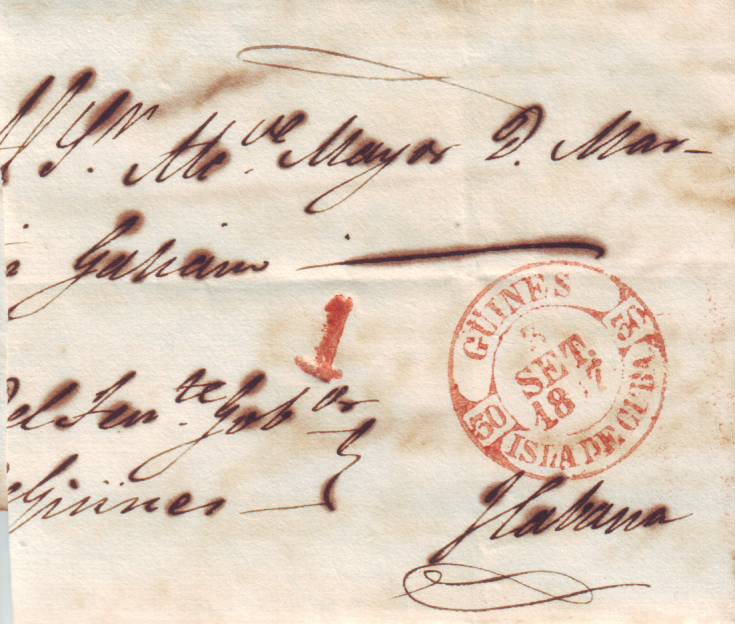 Al Sr. Alc.de Mayor D. Mar-
i Galiano
1
GÜINES
30
SET.
30
ISLA DE CUBA
Del Ten.te Gob.or
de Güines
Habana